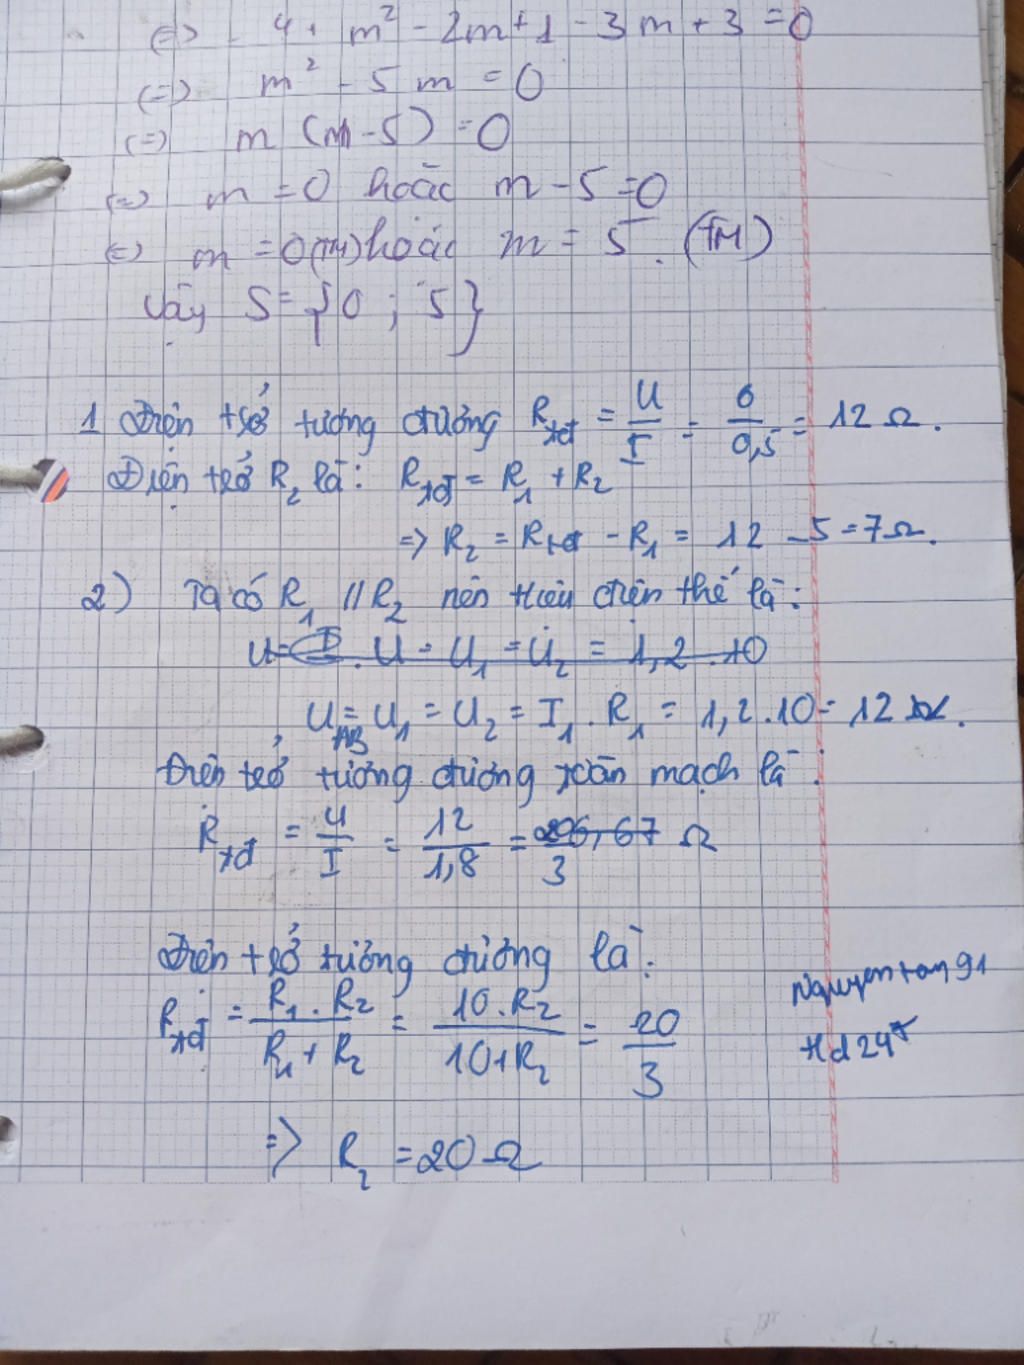 (=) - 4 + m² - 2m + 1 - 3m + 3 = 0
(=) m² - 5m = 0
(=) m (m - 5) = 0
(=) m = 0 hoặc m - 5 = 0
(=) m = 0 (TM) hoặc m = 5. (TM)
Vậy S = {0 ; 5}
1 Điện trở tương đương Rtđ = U/I = 6/0,5 = 12 Ω.
Điện trở R₂ là: Rtđ = R₁ + R₂
=> R₂ = Rtđ - R₁ = 12 - 5 = 7 Ω.
2) Ta có R₁ // R₂ nên hiệu điện thế là:
U = I . U = U₁ = U₂ = 1,2 . 10
U_AB = U₁ = U₂ = I₁ . R₁ = 1,2 . 10 = 12
Điện trở tương đương toàn mạch là:
Rtđ = U/I = 12/1,8 = 20/3 Ω
Điện trở tương đương là:
Rtđ = R₁ . R₂/R₁ + R₂ = 10 . R₂/10 + R₂ = 20/3
Nguyentam91
Hd247
=> R₂ = 20 Ω